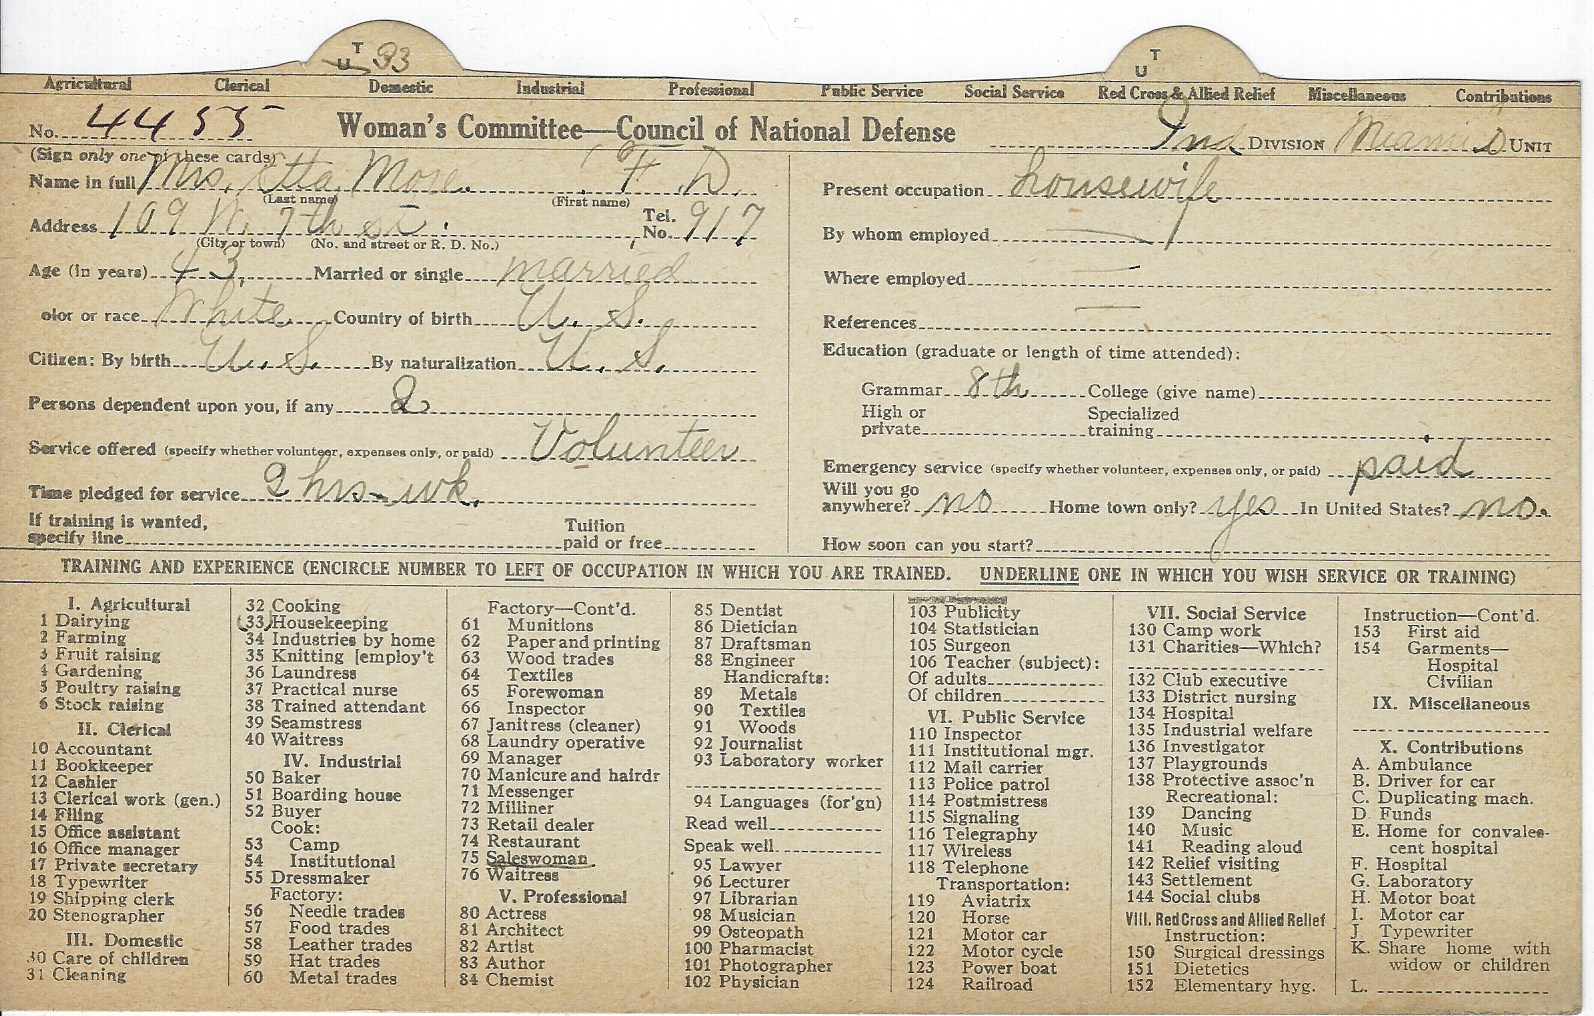 T
U 33
T
U
Agricultural Clerical Domestic Industrial Professional Public Service Social Service Red Cross & Allied Relief Miscellaneous Contributions
No. 4455 Woman's Committee—Council of National Defense 2nd DIVISION Miami D UNIT
(Sign only one of these cards)
Name in full Mrs. Etta More. F. D.
(Last name) (First name)
Address 109 W. 7th st. Tel. No. 917
(City or town) (No. and street or R. D. No.)
Age (in years) 43 Married or single married
olor or race White Country of birth U. S.
Citizen: By birth U. S. By naturalization U. S.
Persons dependent upon you, if any 2
Service offered (specify whether volunteer, expenses only, or paid) Volunteer
Time pledged for service 2 hrs-wk.
If training is wanted,
specify line Tuition
paid or free
Present occupation housewife
By whom employed —
Where employed —
References —
Education (graduate or length of time attended):
Grammar 8th College (give name)
High or
private Specialized
training
Emergency service (specify whether volunteer, expenses only, or paid) paid
Will you go
anywhere? no Home town only? yes In United States? no.
How soon can you start?
TRAINING AND EXPERIENCE (ENCIRCLE NUMBER TO LEFT OF OCCUPATION IN WHICH YOU ARE TRAINED. UNDERLINE ONE IN WHICH YOU WISH SERVICE OR TRAINING)
I. Agricultural
1 Dairying
2 Farming
3 Fruit raising
4 Gardening
5 Poultry raising
6 Stock raising
II. Clerical
10 Accountant
11 Bookkeeper
12 Cashier
13 Clerical work (gen.)
14 Filing
15 Office assistant
16 Office manager
17 Private secretary
18 Typewriter
19 Shipping clerk
20 Stenographer
III. Domestic
30 Care of children
31 Cleaning
32 Cooking
33 Housekeeping
34 Industries by home
35 Knitting [employ't
36 Laundress
37 Practical nurse
38 Trained attendant
39 Seamstress
40 Waitress
IV. Industrial
50 Baker
51 Boarding house
52 Buyer
Cook:
53 Camp
54 Institutional
55 Dressmaker
Factory:
56 Needle trades
57 Food trades
58 Leather trades
59 Hat trades
60 Metal trades
Factory—Cont'd.
61 Munitions
62 Paper and printing
63 Wood trades
64 Textiles
65 Forewoman
66 Inspector
67 Janitress (cleaner)
68 Laundry operative
69 Manager
70 Manicure and hairdr
71 Messenger
72 Milliner
73 Retail dealer
74 Restaurant
75 Saleswoman
76 Waitress
V. Professional
80 Actress
81 Architect
82 Artist
83 Author
84 Chemist
85 Dentist
86 Dietician
87 Draftsman
88 Engineer
Handicrafts:
89 Metals
90 Textiles
91 Woods
92 Journalist
93 Laboratory worker
94 Languages (for'gn)
Read well
Speak well
95 Lawyer
96 Lecturer
97 Librarian
98 Musician
99 Osteopath
100 Pharmacist
101 Photographer
102 Physician
103 Publicity
104 Statistician
105 Surgeon
106 Teacher (subject):
Of adults
Of children
VI. Public Service
110 Inspector
111 Institutional mgr.
112 Mail carrier
113 Police patrol
114 Postmistress
115 Signaling
116 Telegraphy
117 Wireless
118 Telephone
Transportation:
119 Aviatrix
120 Horse
121 Motor car
122 Motor cycle
123 Power boat
124 Railroad
VII. Social Service
130 Camp work
131 Charities—Which?
132 Club executive
133 District nursing
134 Hospital
135 Industrial welfare
136 Investigator
137 Playgrounds
138 Protective assoc'n
Recreational:
139 Dancing
140 Music
141 Reading aloud
142 Relief visiting
143 Settlement
144 Social clubs
VIII. Red Cross and Allied Relief
Instruction:
150 Surgical dressings
151 Dietetics
152 Elementary hyg.
Instruction—Cont'd.
153 First aid
154 Garments—
Hospital
Civilian
IX. Miscellaneous
X. Contributions
A. Ambulance
B. Driver for car
C. Duplicating mach.
D. Funds
E. Home for convales-
cent hospital
F. Hospital
G. Laboratory
H. Motor boat
I. Motor car
J. Typewriter
K. Share home with
widow or children
L.